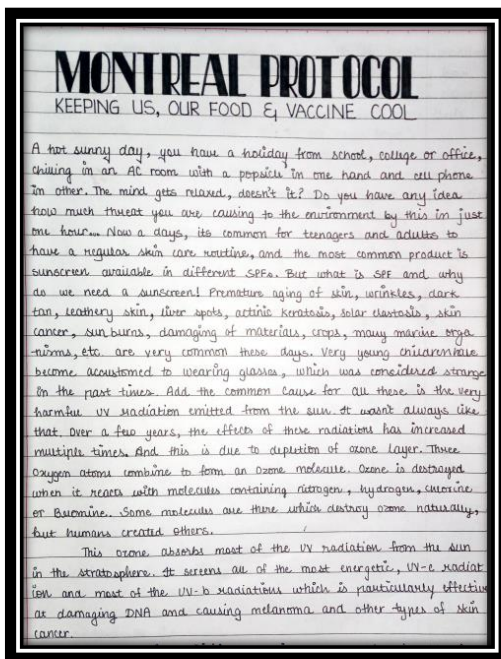 MONTREAL PROTOCOL
KEEPING US, OUR FOOD & VACCINE COOL
A hot sunny day, you have a holiday from school, college or office,
chilling in an AC room with a popsicle in one hand and cell phone
in other. The mind gets relaxed, doesn't it? Do you have any idea
how much threat you are causing to the environment by this in just
one hour... Now a days, its common for teenagers and adults to
have a regular skin care routine, and the most common product is
sunscreen available in different SPFs. But what is SPF and why
do we need a sunscreen! Premature aging of skin, wrinkles, dark
tan, leathery skin, liver spots, actinic keratosis, solar elastosis, skin
cancer, sun burns, damaging of materials, crops, many marine orga
-nisms, etc. are very common these days. Very young children have
become acoustomed to wearing glasses, which was considered strange
in the past times. Add the common cause for all these is the very
harmful UV radiation emitted from the sun. It wasn't always like
that. Over a few years, the effects of these radiations has increased
multiple times. And this is due to depletion of ozone layer. Three
Oxygen atoms combine to form an Ozone molecule. Ozone is destroyed
when it reacts with molecules containing nitrogen, hydrogen, chlorine
or Bromine. Some molecules are there which destroy ozone naturally,
but humans created others.
This ozone absorbs most of the UV radiation from the sun
in the stratosphere. It screens all of the most energetic, UV-c radiat
ion and most of the UV-b radiations which is particularly effective
at damaging DNA and causing melanoma and other types of skin
cancer.